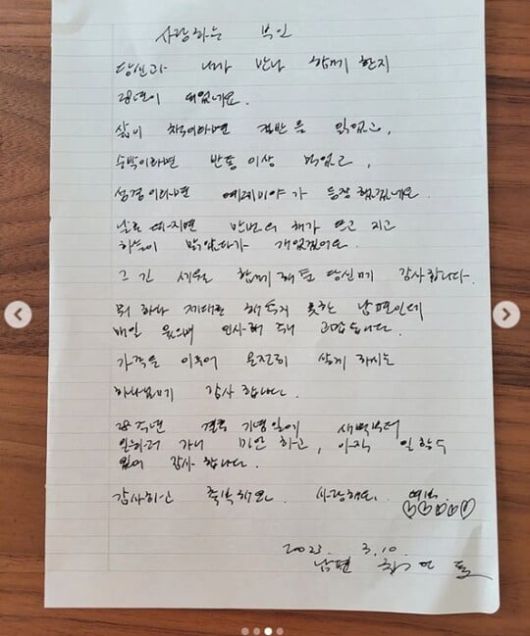 사랑하는 부인
당신과 내가 만나 함께 한지
28년이 되었네요.
삶이 책이라면 절반을 읽었고,
수박이라면 반통이상 먹었고,
성경이라면 예레미야가 등장 했겠네요.
날로 따지면 만번의 해가 뜨고 지고
하늘이 맑았다가 개었겠어요.
그 긴 세월을 함께 해준 당신께 감사합니다.
뭐 하나 제대로 해준게 없는 남편인데
매일 웃으며 인사해 줘서 고맙습니다.
가족을 이루어 온전히 살게 하시는
하나님께 감사 합니다.
28주년 결혼 기념일에 새벽부터
일하러 가니 미안 하고, 아직 일할수
있어 감사 합니다.
감사하고 축복해요. 사랑해요. 여보.
♡♡♡♡♡
2023. 3. 10.
남편